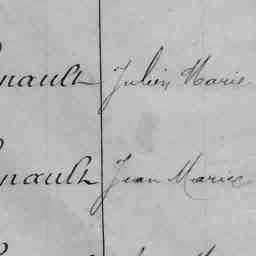 nault Julien Marie
nault Jean Marie